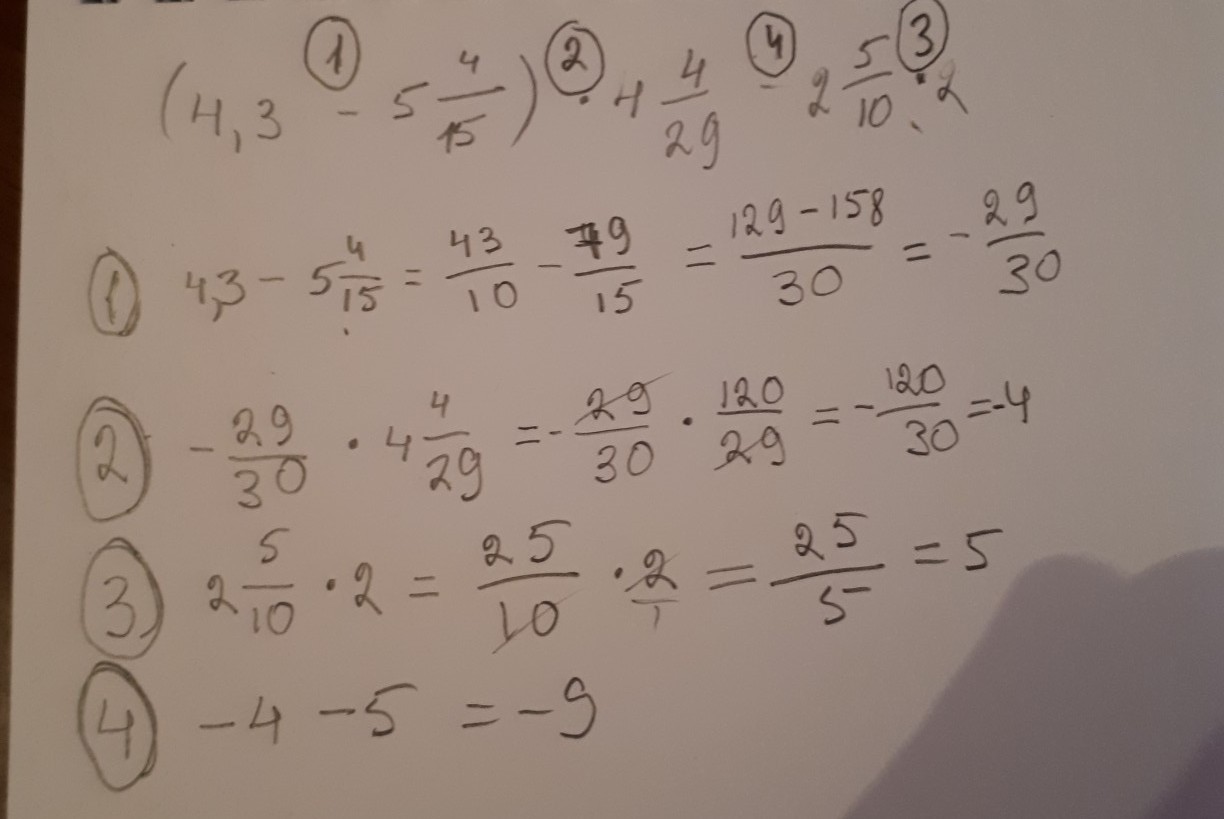 (4,3 ① - 5 4/15) ② · 4 4/29 ④ - 2 5/10 ③ · 2
① 4,3 - 5 4/15 = 43/10 - 79/15 = (129 - 158)/30 = - 29/30
② - 29/30 · 4 4/29 = - 29/30 · 120/29 = - 120/30 = -4
③ 2 5/10 · 2 = 25/10 · 2/1 = 25/5 = 5
④ - 4 - 5 = - 9